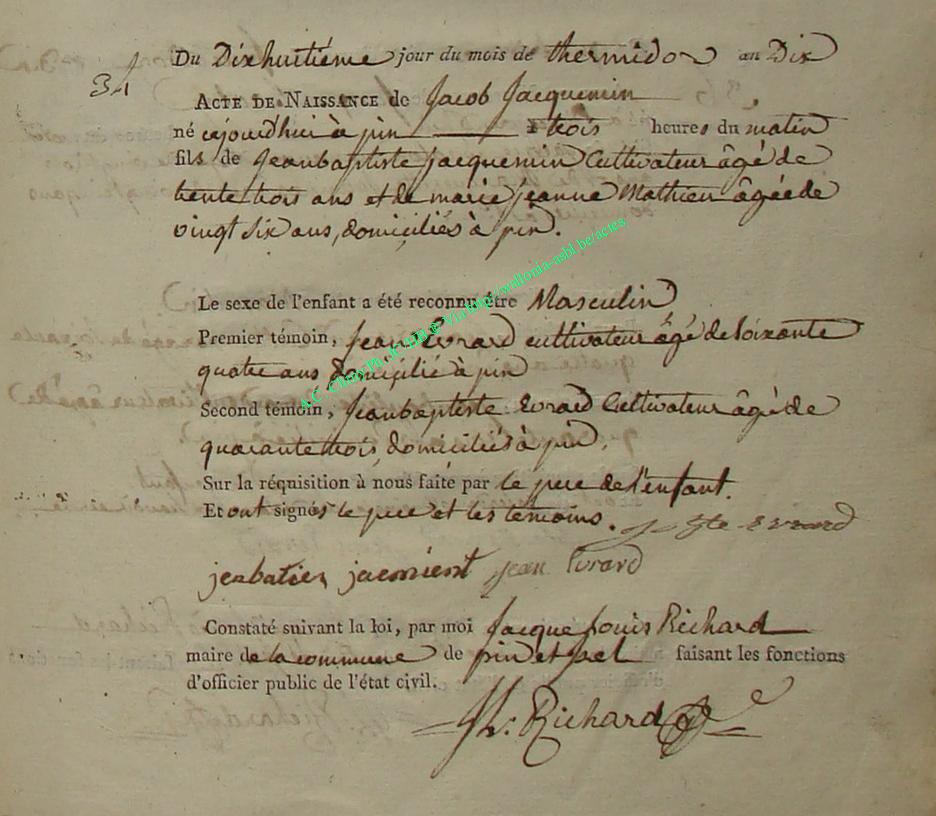 34
Du Dixhuitiéme jour du mois de thermidor an Dix
ACTE DE NAISSANCE de Jacob Jacquemin
né cejourdhui à pin à trois heures du matin
fils de Jeanbaptiste jacquemin Cultivateur âgé de
trente trois ans et de marie jeanne Mathieu âgée de
vingt six ans, domiciliés à pin.
Le sexe de l'enfant a été reconnu être Masculin
Premier témoin, Jean Evrard cultivateur âgé de soixante
quatre ans domicilié à pin
Second témoin, Jeanbaptiste Evrard Cultivateur âgé de
quarante trois, domiciliés à pin.
Sur la réquisition à nous faite par le pere de l'enfant.
Et ont signés le pere et les témoins. J Bte Evrard
jenbatien jacmient jean Evrard
Constaté suivant la loi, par moi Jacque Louis Richard
maire de la commune de pin et izel faisant les fonctions
d'officier public de l'état civil.
Richard
http://wallonia-asbl.be/actes